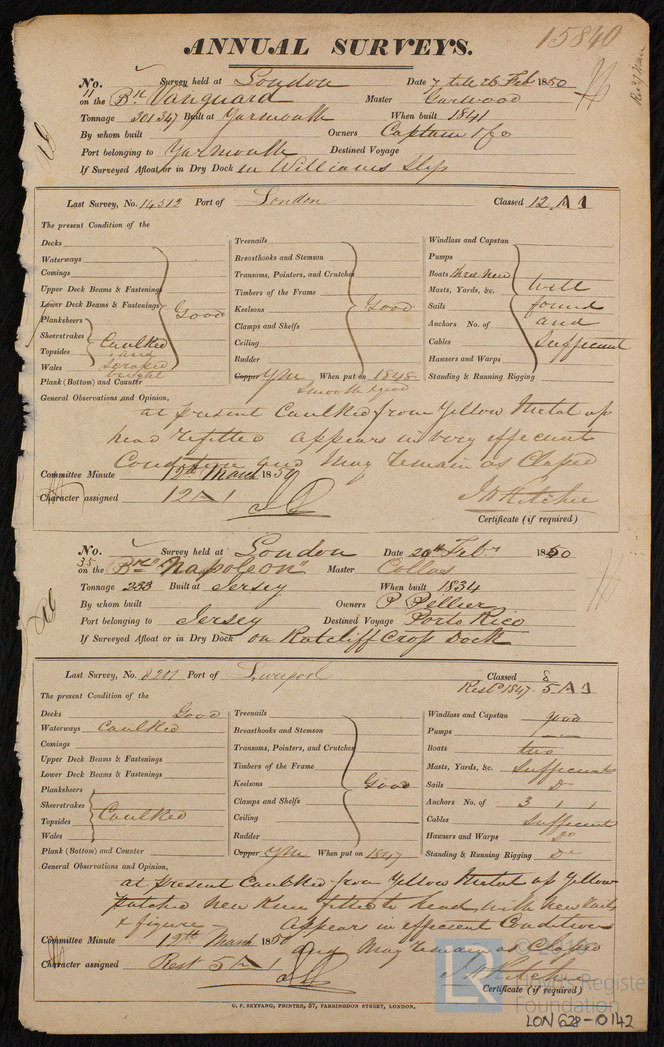 15840
ANNUAL SURVEYS.
No. 11 Survey held at London Date 7 till 26 Feb 1850
on the Bk Vanguard Master Garwood
Tonnage 301 347 Built at Yarmouth When built 1841
By whom built Owners Captain & Co
Port belonging to Yarmouth Destined Voyage
If Surveyed Afloat or in Dry Dock in Williams Slip
Last Survey, No. 14512 Port of London Classed 12 A 1
The present Condition of the
Decks
Waterways
Comings
Upper Deck Beams & Fastenings
Lower Deck Beams & Fastenings
Good
Planksheers
Sheerstrakes
Topsides
Wales
Caulked
and
scraped
bright
Plank (Bottom) and Counter
Treenails
Breasthooks and Stemson
Transoms, Pointers, and Crutches
Timbers of the Frame
Keelsons Good
Clamps and Shelfs
Ceiling
Rudder
Copper YM When put on 1848
Smooth & good
Windlass and Capstan
Pumps
Boats three new
Masts, Yards, &c. Well
Sails found
Anchors No. of and
Cables Sufficient
Hawsers and Warps
Standing & Running Rigging
General Observations and Opinion,
at present Caulked from Yellow Metal up
head refitted appears in very efficient
Condition and May remain as Classed
Committee Minute 12th March 1850
Character assigned 12 A 1
Certificate (if required)
No. 35 Survey held at London Date 20th Feby 1850
on the Bk "Napoleon" Master Collas
Tonnage 233 Built at Jersey When built 1834
By whom built Owners P Pellier
Port belonging to Jersey Destined Voyage Porto Rico
If Surveyed Afloat or in Dry Dock on Ratcliff Cross Dock
Last Survey, No. 8201 Port of Liverpool Classed 8
Restd 1847 5 A 1
The present Condition of the
Decks Good
Waterways Caulked
Comings
Upper Deck Beams & Fastenings
Lower Deck Beams & Fastenings
Planksheers
Sheerstrakes
Topsides
Wales
Caulked
Plank (Bottom) and Counter
Treenails
Breasthooks and Stemson
Transoms, Pointers, and Crutches
Timbers of the Frame
Keelsons Good
Clamps and Shelfs
Ceiling
Rudder
Copper YM When put on 1847
Windlass and Capstan good
Pumps
Boats two
Masts, Yards, &c. Sufficient
Sails Do
Anchors No. of 3, 1, 1
Cables Sufficient
Hawsers and Warps Do
Standing & Running Rigging Do
General Observations and Opinion,
at present Caulked from Yellow Metal up Yellow
patched New Knee fitted to head with New
& figure appears in efficient Condition
and May remain as Classed
Committee Minute 12th March 1850
Character assigned Rest 5 A 1
Certificate (if required)
C. F. SEYFANG, PRINTER, 57, FARRINGDON STREET, LONDON.
LR
Lloyd's Register
Foundation
LON 628-0142